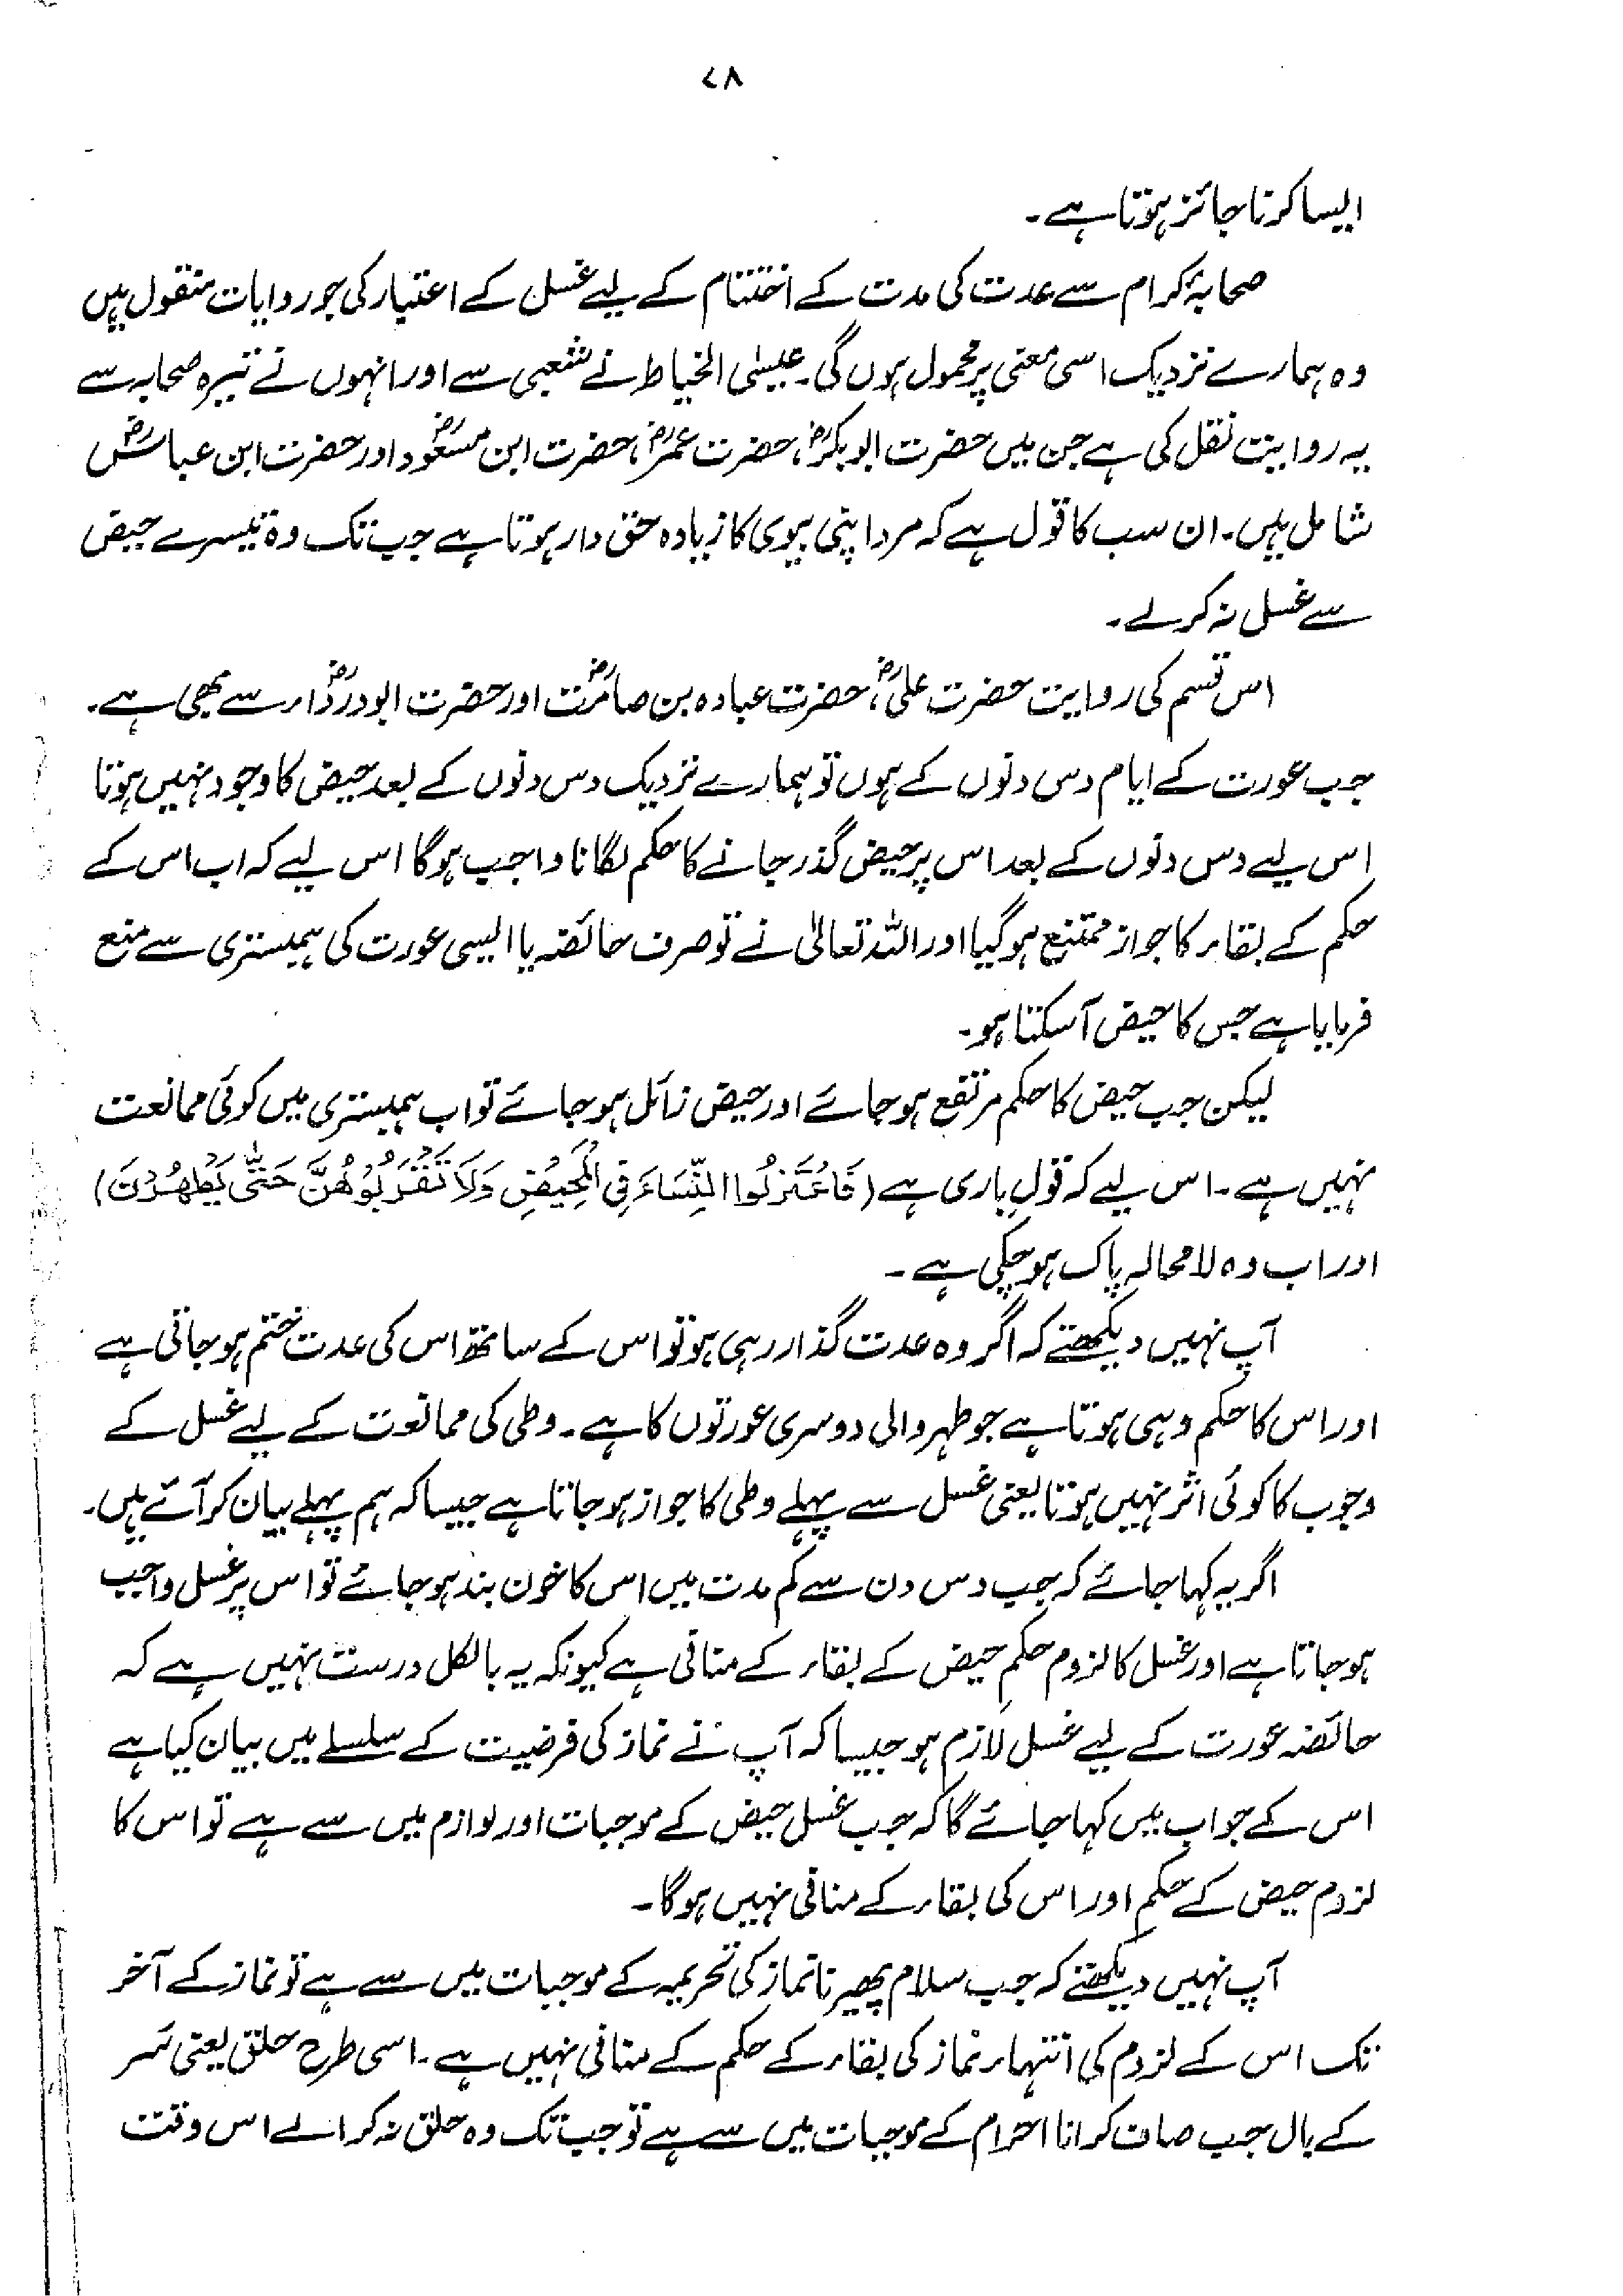 ۷۸
ایسا کرنا جائز ہوتا ہے۔
صحابۂ کرام سے عدت کی مدت کے اختتام کے لیے غسل کے اعتبار کی جو روایات منقول ہیں
وہ ہمارے نزدیک اسی معنی پر محمول ہوں گی۔ عیسٰی الخیاط نے شعبی سے اور انہوں نے تیرہ صحابہ سے
یہ روایت نقل کی ہے جن میں حضرت ابوبکرؓ، حضرت عمرؓ، حضرت ابن مسعودؓ اور حضرت ابن عباسؓ
شامل ہیں۔ ان سب کا قول ہے کہ مرد اپنی بیوی کا زیادہ حق دار ہوتا ہے جب تک وہ تیسرے حیض
سے غسل نہ کرلے۔
اس قسم کی روایت حضرت علیؓ، حضرت عبادہ بن صامتؓ اور حضرت ابودرداؓء سے بھی ہے۔
جب عورت کے ایام دس دنوں کے ہوں تو ہمارے نزدیک دس دنوں کے بعد حیض کا وجود نہیں ہوتا
اس لیے دس دنوں کے بعد اس پر حیض گذر جانے کا حکم لگانا واجب ہوگا اس لیے کہ اب اس کے
حکم کے بقاء کا جواز ممتنع ہوگیا اور اللہ تعالٰی نے تو صرف حائضہ یا ایسی عورت کی ہمبستری سے منع
فرمایا ہے جس کا حیض آسکتا ہو۔
لیکن جب حیض کا حکم مرتفع ہوجائے اور حیض زائل ہوجائے تو اب ہمبستری میں کوئی ممانعت
نہیں ہے۔ اس لیے کہ قولِ باری ہے (فَاعْتَزِلُوا النِّسَاءَ فِی الْمَحِیْضِ وَلَا تَقْرَبُوْهُنَّ حَتّٰی یَطْهُرْنَ)
اور اب وہ لامحالہ پاک ہوچکی ہے۔
آپ نہیں دیکھتے کہ اگر وہ عدت گذار رہی ہو تو اس کے ساتھ اس کی عدت ختم ہوجاتی ہے
اور اس کا حکم وہی ہوتا ہے جو طہر والی دوسری عورتوں کا ہے۔ وطی کی ممانعت کے لیے غسل کے
وجوب کا کوئی اثر نہیں ہوتا یعنی غسل سے پہلے وطی کا جواز ہوجاتا ہے جیسا کہ ہم پہلے بیان کر آئے ہیں۔
اگر یہ کہا جائے کہ جب دس دن سے کم مدت میں اس کا خون بند ہوجائے تو اس پر غسل واجب
ہوجاتا ہے اور غسل کا لزوم حکمِ حیض کے بقاء کے منافی ہے کیونکہ یہ بالکل درست نہیں ہے کہ
حائضہ عورت کے لیے غسل لازم ہو جیسا کہ آپ نے نماز کی فرضیت کے سلسلے میں بیان کیا ہے
اس کے جواب میں کہا جائے گا کہ جب غسل حیض کے موجبات اور لوازم میں سے ہے تو اس کا
لزوم حیض کے حکم اور اس کی بقاء کے منافی نہیں ہوگا۔
آپ نہیں دیکھتے کہ جب سلام پھیرنا نماز کی تحریمہ کے موجبات میں سے ہے تو نماز کے آخر
تک اس کے لزوم کی انتہاء نماز کی بقاء کے حکم کے منافی نہیں ہے۔ اسی طرح حلق یعنی سر
کے بال جب صاف کرانا احرام کے موجبات میں سے ہے تو جب تک وہ حلق نہ کرالے اس وقت